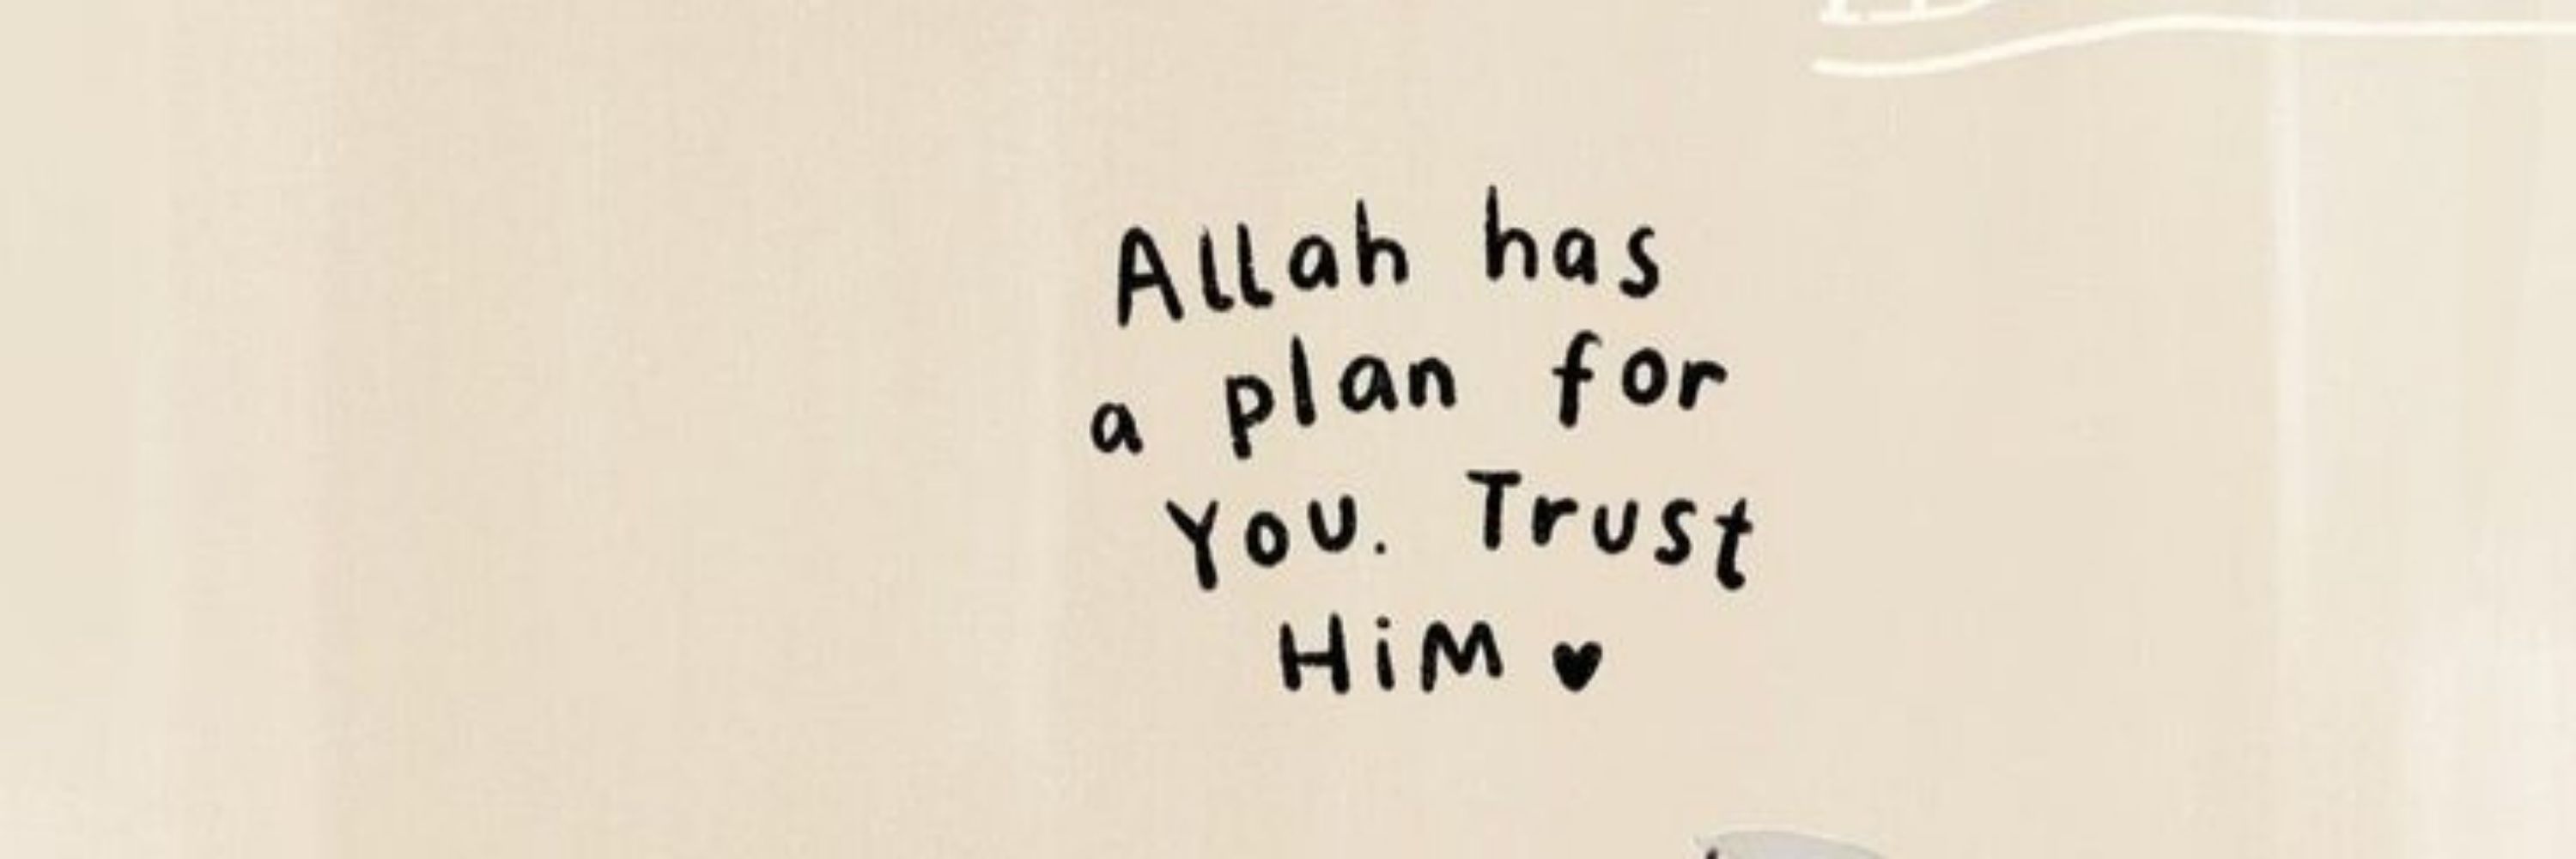 Allah has
a plan for
You. Trust
HiM ♥